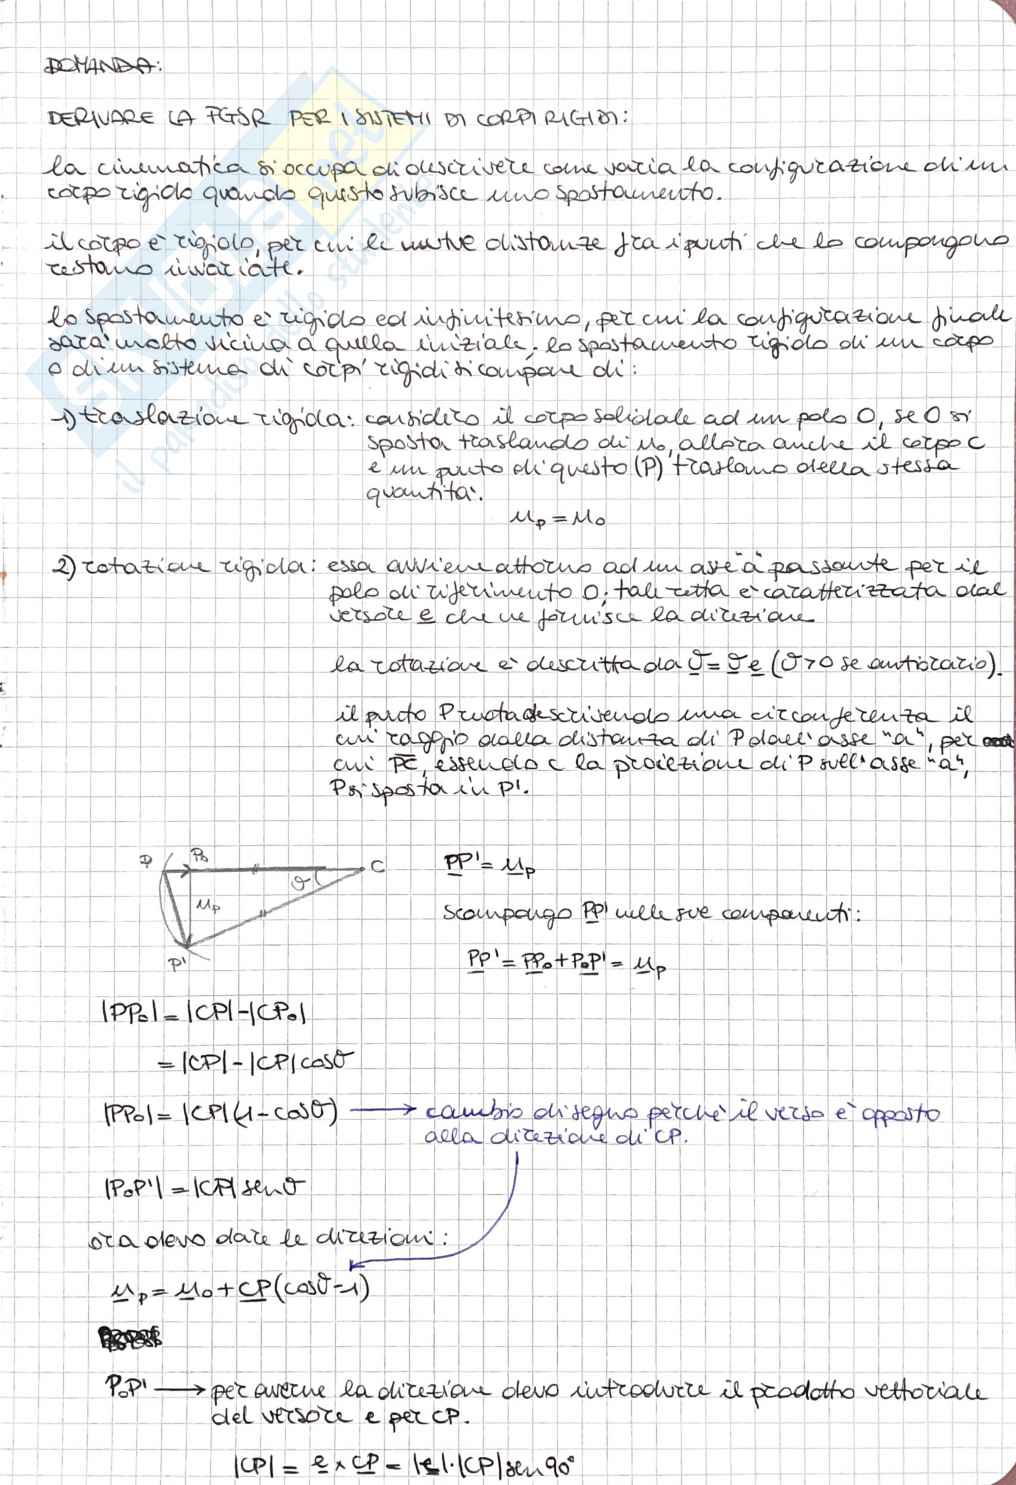 DOMANDA:
DERIVARE LA FGSR PER I SISTEMI DI CORPI RIGIDI:
la cinematica si occupa di descrivere come varia la configurazione di un
corpo rigido quando questo subisce uno spostamento.
il corpo è rigido, per cui le mutue distanze fra i punti che lo compongono
restano invariate.
lo spostamento è rigido ed infinitesimo, per cui la configurazione finale
sarà molto vicina a quella iniziale; lo spostamento rigido di un corpo
o di un sistema di corpi rigidi si compone di:
1) traslazione rigida: considero il corpo solidale ad un polo O, se O si
sposta traslando di u₀, allora anche il corpo C
e un punto di questo (P) traslano della stessa
quantità:
uₚ = u₀
2) rotazione rigida: essa avviene attorno ad un asse "a" passante per il
polo di riferimento O; tale retta è caratterizzata dal
versore e che ne fornisce la direzione
la rotazione è descritta da ϑ = ϑ e (ϑ>0 se antiorario).
il punto P ruota descrivendo una circonferenza il
cui raggio dalla distanza di P dall'asse "a", per
cui PC, essendo C la proiezione di P sull'asse "a",
P si sposta in P'.
P P₀ C
ϑ
uₚ
P'
PP' = uₚ
scompongo PP' nelle sue componenti:
PP' = PP₀ + P₀P' = uₚ
|PP₀| = |CP| - |CP₀|
= |CP| - |CP| cosϑ
|PP₀| = |CP| (1 - cosϑ) → cambio di segno perchè il verso è opposto
alla direzione di CP.
|P₀P'| = |CP| senϑ
ora devo dare le direzioni:
uₚ = u₀ + CP (cosϑ - 1)
P₀P' → per averne la direzione devo introdurre il prodotto vettoriale
del versore e per CP.
|CP| = e × CP = |e| · |CP| sen 90°